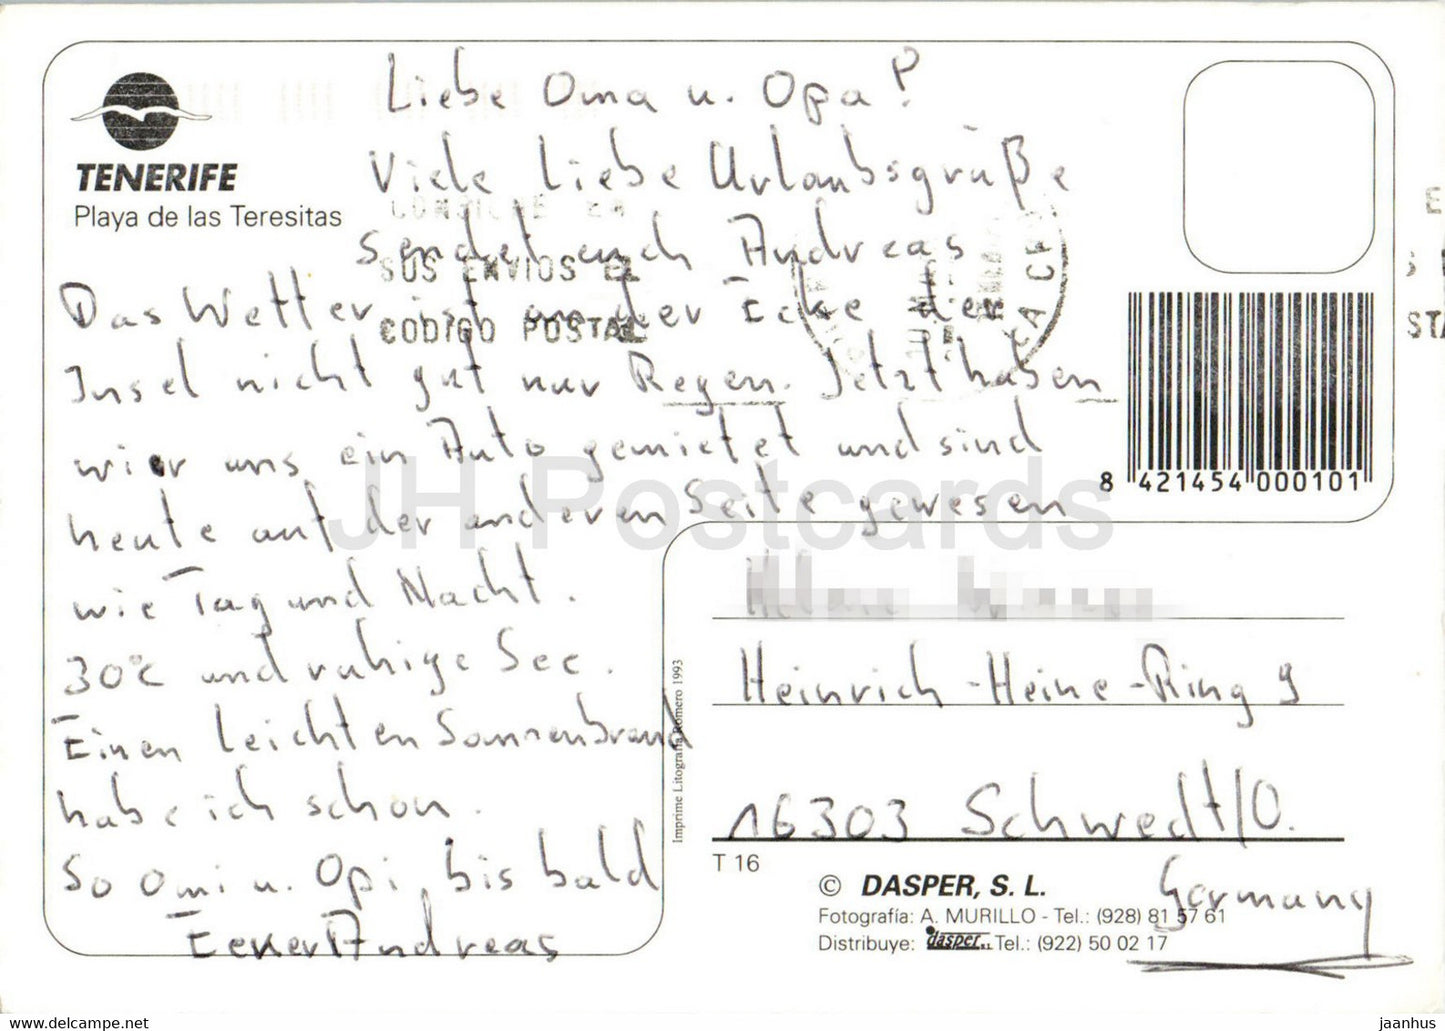 TENERIFE
Playa de las Teresitas
Liebe Oma u. Opa!
Viele liebe Urlaubsgrüße
sendet euch Andreas
Das Wetter ist an der Ecke der
Insel nicht gut nur Regen. Jetzt haben
wir uns ein Auto gemietet und sind
heute auf der anderen Seite gewesen
wie Tag und Nacht.
30°C und ruhige See.
Einen leichten Sonnenbrand
habe ich schon.
So Omi u. Opi, bis bald
Euer Andreas
CONSIGNE EN
SUS ENVIOS EL
CODIGO POSTAL
8 421454 000101
JH Postcards
Heinrich-Heine-Ring 9
16303 Schwedt/O.
Germany
Imprime Litografía Romero 1993
T 16
© DASPER, S. L.
Fotografía: A. MURILLO - Tel.: (928) 81 57 61
Distribuye: dasper S.L. Tel.: (922) 50 02 17
www.delcampe.net
jaanhus